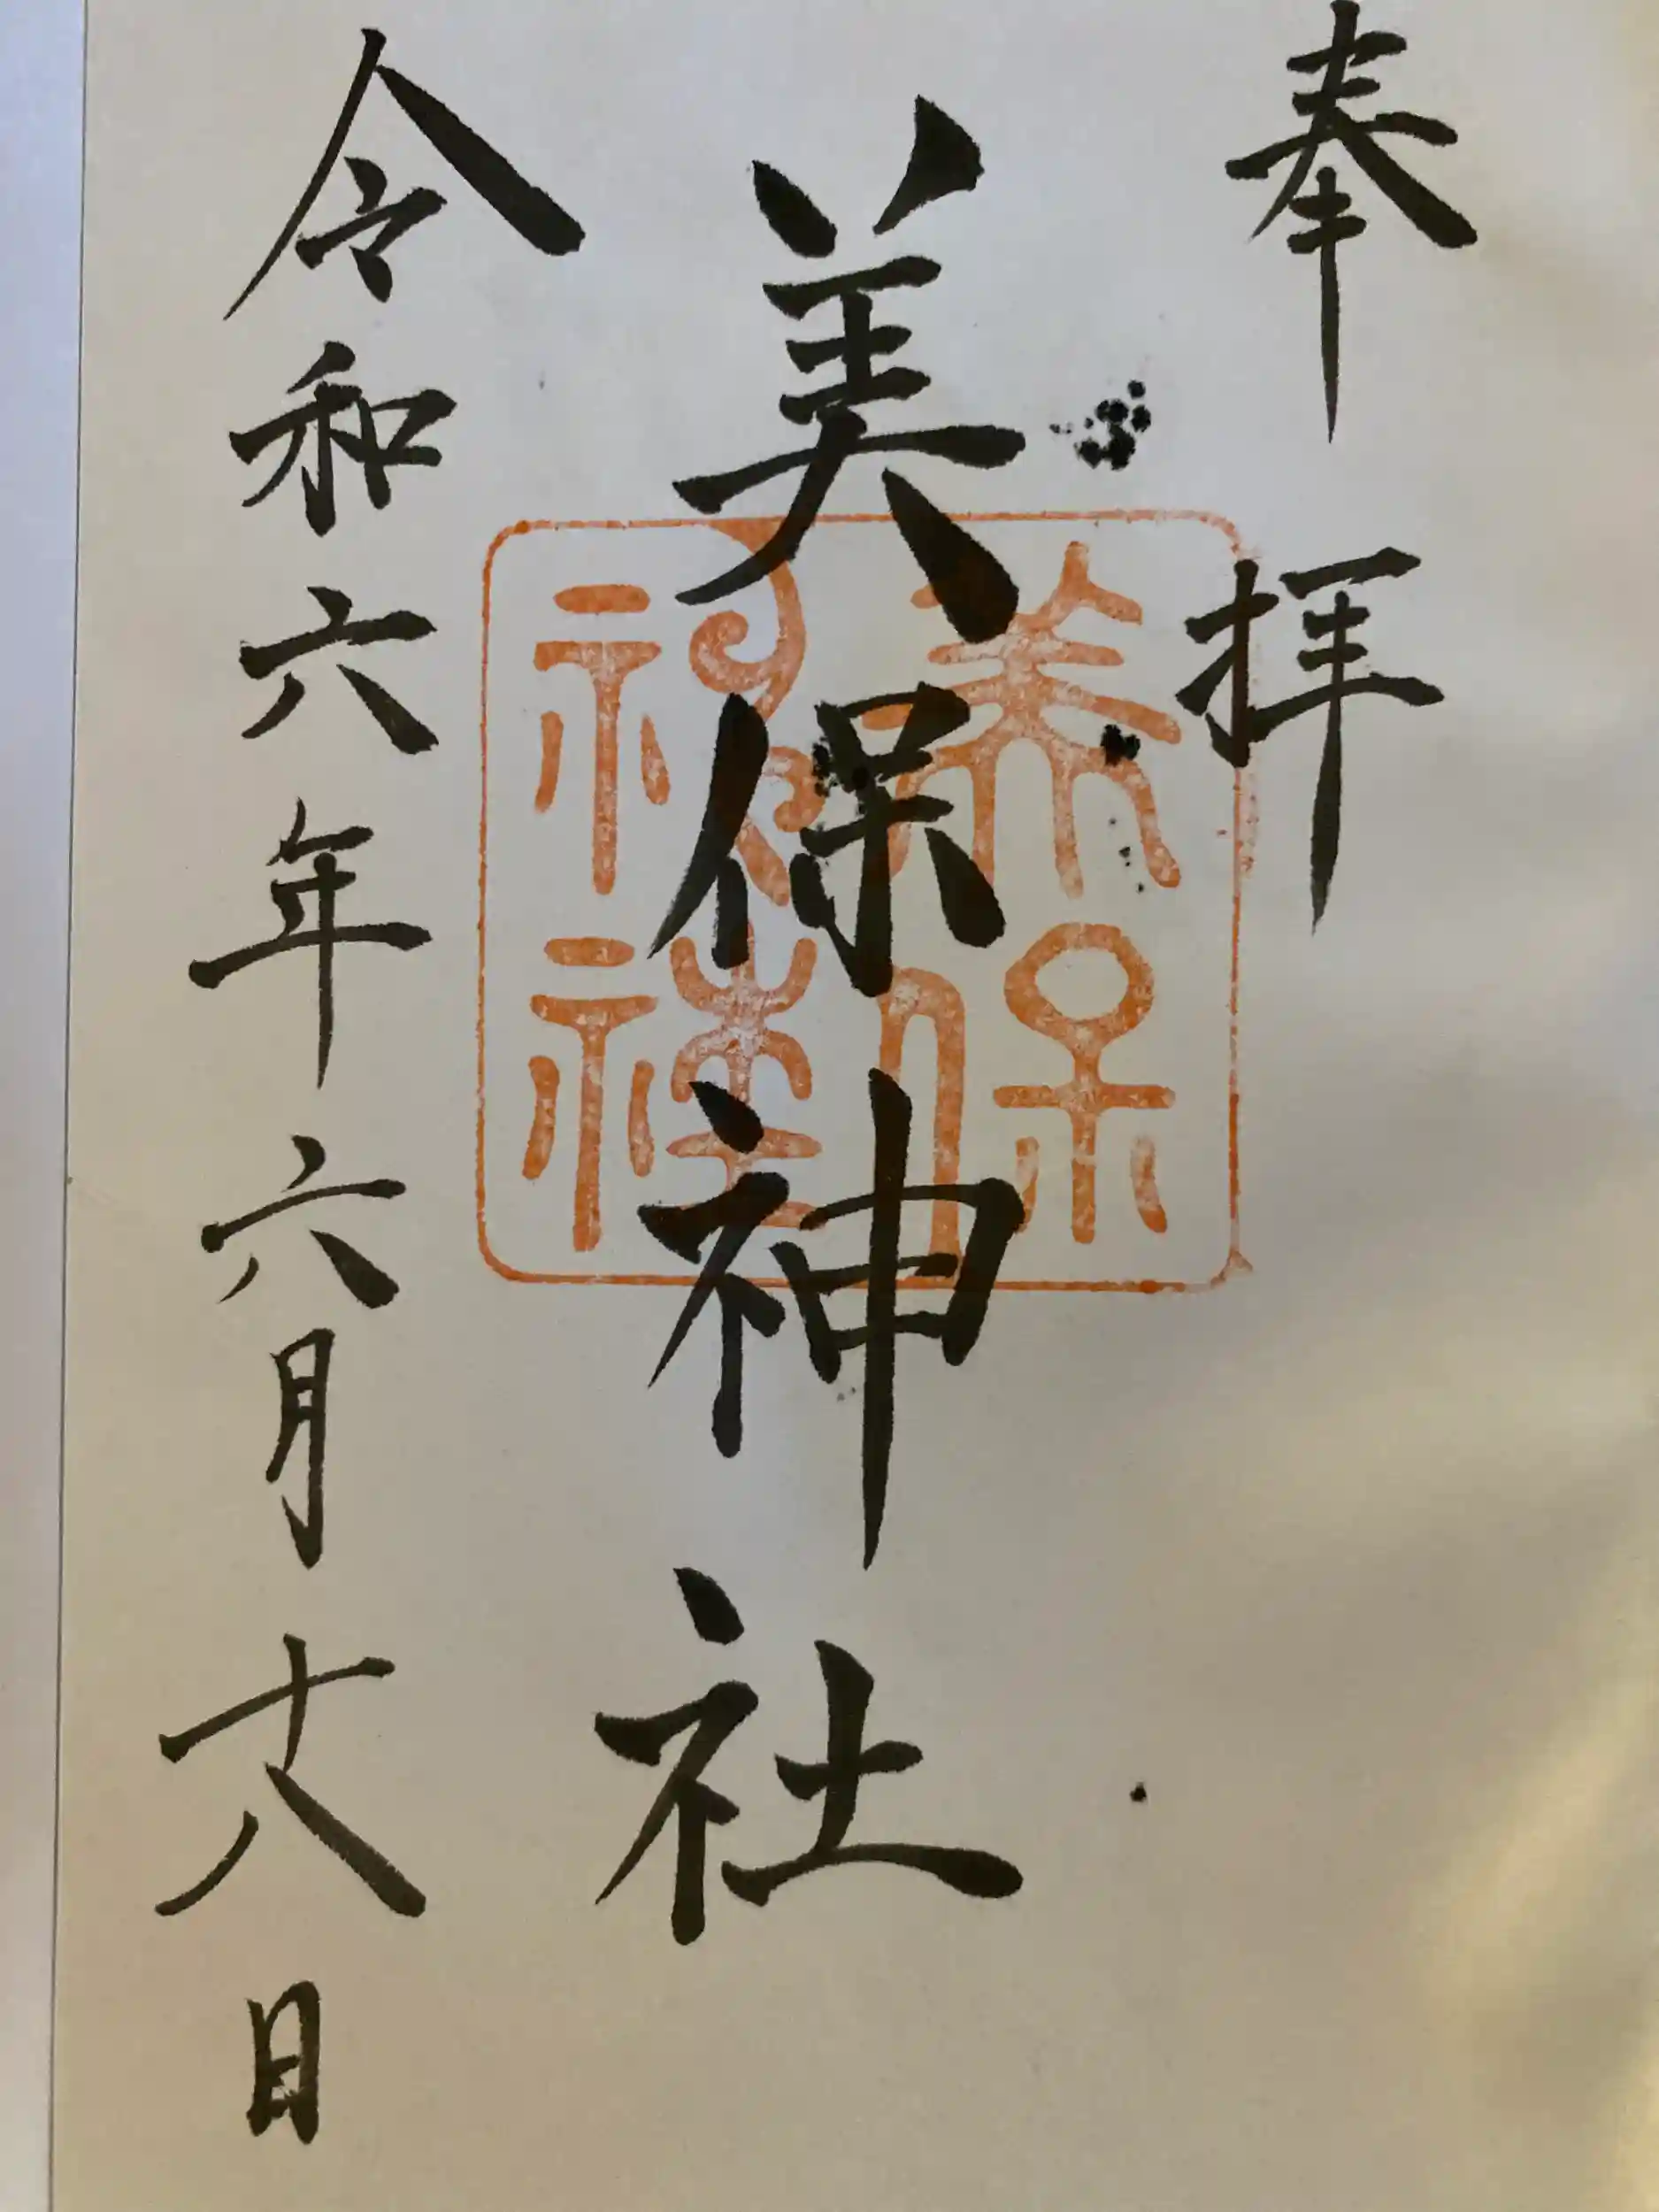 奉拝
美保神社
美保神社
令和六年六月十八日